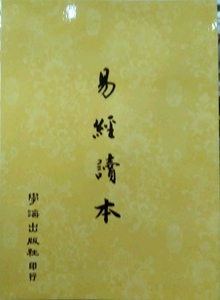 易經讀本
學海出版社印行